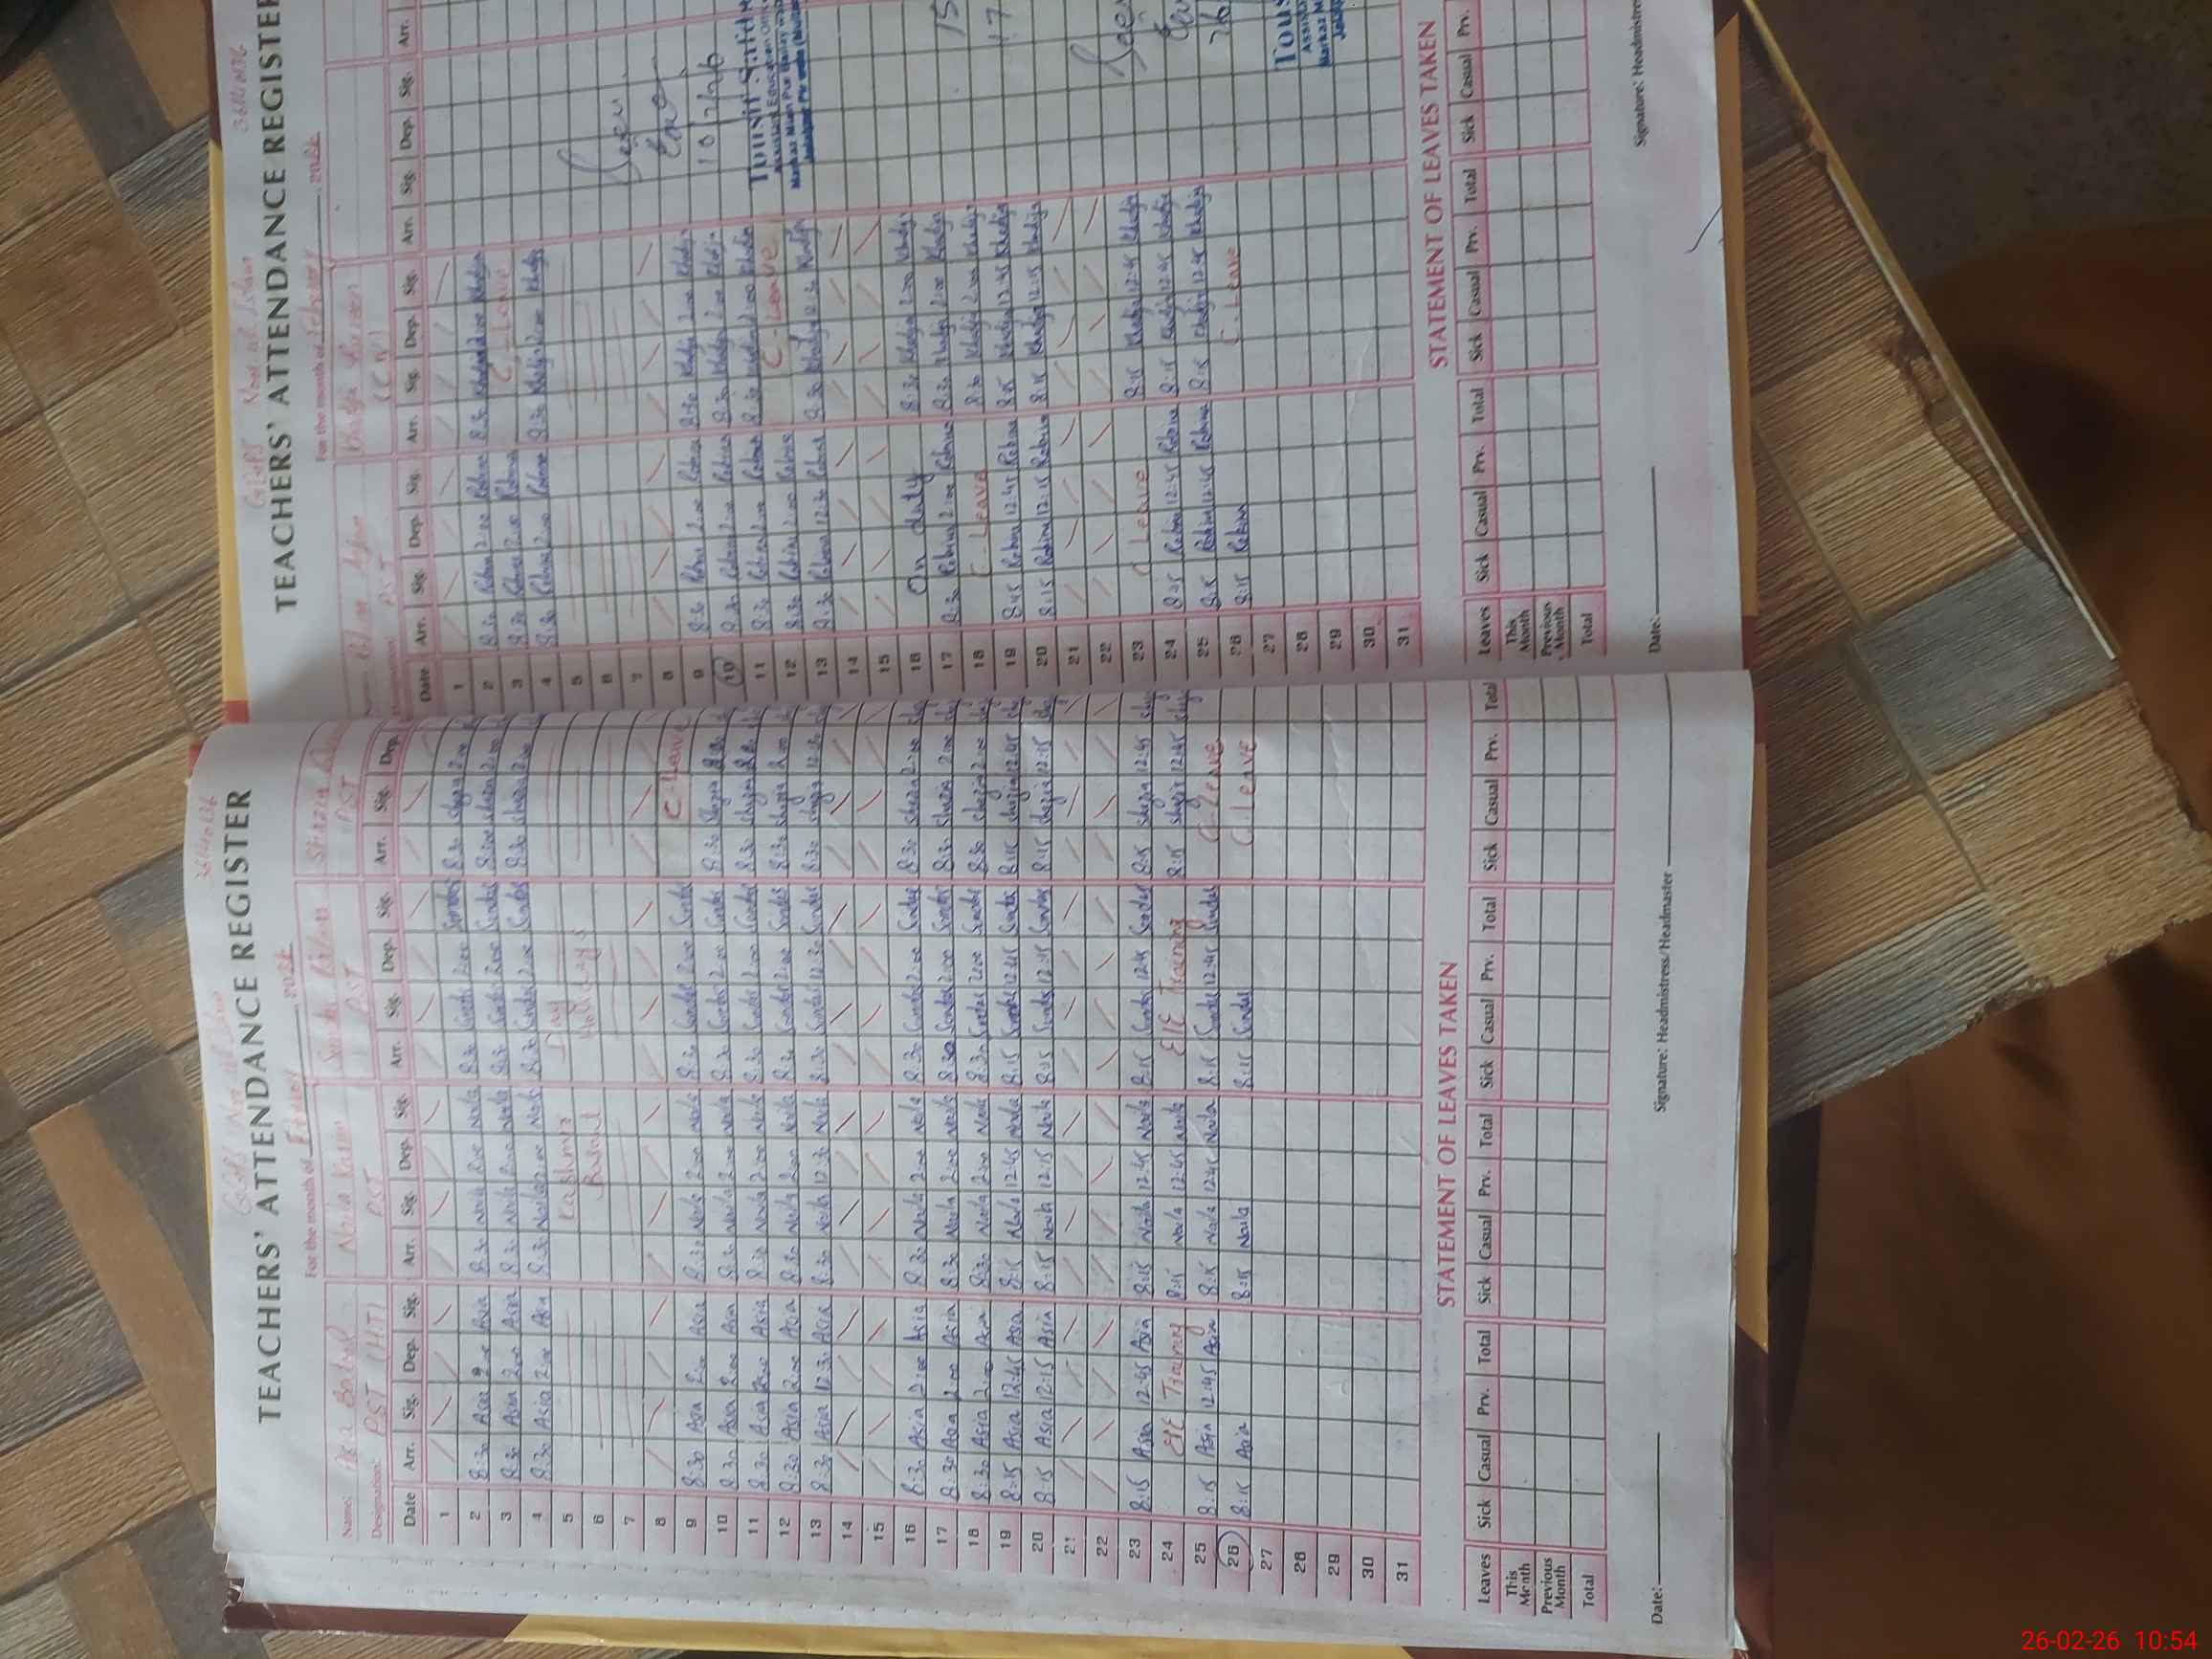 36410036
TEACHERS' ATTENDANCE REGISTER
For the month of 2026
Name: Asia Batool Naila Nasim Shazia
Designation: PST (HT) PST PST PST
Date Arr. Sig. Dep. Sig. Arr. Sig. Dep. Sig. Arr. Sig. Dep. Sig. Arr. Sig. Dep.
1
2 8:30 Asia 2:00 Asia 8:30 Naila 2:00 Naila 8:30 Sundas 2:00 Sundas 8:30 Shazia 2:00
3 8:30 Asia 2:00 Asia 8:30 Naila 2:00 Naila 8:30 Sundas 2:00 Sundas 8:30 Shazia 2:00
4 8:30 Asia 2:00 Asia 8:30 Naila 2:00 Naila 8:30 Sundas 2:00 Sundas 8:30 Shazia 2:00
5 Kashmir Day
6 Basant Holidays
7
8
9 8:30 Asia 2:00 Asia 8:30 Naila 2:00 Naila 8:30 Sundas 2:00 Sundas C-Leave
10 8:30 Asia 2:00 Asia 8:30 Naila 2:00 Naila 8:30 Sundas 2:00 Sundas 8:30 Shazia 2:00
11 8:30 Asia 2:00 Asia 8:30 Naila 2:00 Naila 8:30 Sundas 2:00 Sundas 8:30 Shazia 2:00
12 8:30 Asia 2:00 Asia 8:30 Naila 2:00 Naila 8:30 Sundas 2:00 Sundas 8:30 Shazia 2:00
13 8:30 Asia 12:30 Asia 8:30 Naila 12:30 Naila 8:30 Sundas 12:30 Sundas 8:30 Shazia 12:30
14
15
16 8:30 Asia 2:00 Asia 8:30 Naila 2:00 Naila 8:30 Sundas 2:00 Sundas 8:30 Shazia 2:00
17 8:30 Asia 2:00 Asia 8:30 Naila 2:00 Naila 8:30 Sundas 2:00 Sundas 8:30 Shazia 2:00
18 8:30 Asia 2:00 Asia 8:30 Naila 2:00 Naila 8:30 Sundas 2:00 Sundas 8:30 Shazia 2:00
19 8:15 Asia 12:45 Asia 8:15 Naila 12:45 Naila 8:15 Sundas 12:45 Sundas 8:15 Shazia 12:45
20 8:15 Asia 12:15 Asia 8:15 Naila 12:15 Naila 8:15 Sundas 12:15 Sundas 8:15 Shazia 12:15
21
22
23 8:15 Asia 12:45 Asia 8:15 Naila 12:45 Naila 8:15 Sundas 12:45 Sundas 8:15 Shazia 12:45
24 Training 8:15 Naila 12:45 Naila Training 8:15 Shazia 12:45
25 8:15 Asia 12:45 Asia 8:15 Naila 12:45 Naila 8:15 Sundas 12:45 Sundas C-Leave
26 8:15 Asia 8:15 Naila 8:15 Sundas C-Leave
27
28
29
30
31
STATEMENT OF LEAVES TAKEN
Leaves Sick Casual Prv. Total Sick Casual Prv. Total Sick Casual Prv. Total Sick Casual Prv. Total
This Month
Previous Month
Total
Date: Signature: Headmistress/Headmaster
36410036
TEACHERS' ATTENDANCE REGISTER
For the month of February 2026
Name: Khadija
PST
Date Arr. Sig. Dep. Sig. Arr. Sig. Dep. Sig. Arr. Sig. Dep. Sig. Arr.
1
2 8:30 Robina 2:00 Robina 8:30 Khadija 2:00 Khadija
3 8:30 Robina 2:00 Robina C-Leave
4 8:30 Robina 2:00 Robina 8:30 Khadija 2:00 Khadija
5
6
7 Seen
8
9 8:30 Robina 2:00 Robina 8:30 Khadija 2:00 Khadija
10 8:30 Robina 2:00 Robina 8:30 Khadija 2:00 Khadija
11 8:30 Robina 2:00 Robina 8:30 Khadija 2:00 Khadija
12 8:30 Robina 2:00 Robina C-Leave
13 8:30 Robina 12:30 Robina 8:30 Khadija 12:30 Khadija
14
15
16 On duty 8:30 Khadija 2:00 Khadija
17 8:30 Robina 2:00 Robina 8:30 Khadija 2:00 Khadija
18 C-Leave 8:30 Khadija 2:00 Khadija
19 8:45 Robina 12:45 Robina 8:15 Khadija 12:45 Khadija
20 8:15 Robina 12:15 Robina 8:15 Khadija 12:15 Khadija
21
22
23 C Leave 8:15 Khadija 12:45 Khadija
24 8:15 Robina 12:45 Robina 8:15 Khadija 12:45 Khadija
25 8:15 Robina 12:45 Robina 8:15 Khadija 12:45 Khadija
26 8:15 Robina C. Leave
27
28
29
30
31
STATEMENT OF LEAVES TAKEN
Leaves Sick Casual Prv. Total Sick Casual Prv. Total Sick Casual Prv.
This Month
Previous Month
Total
Date: Signature: Headmistress
26-02-26 10:54